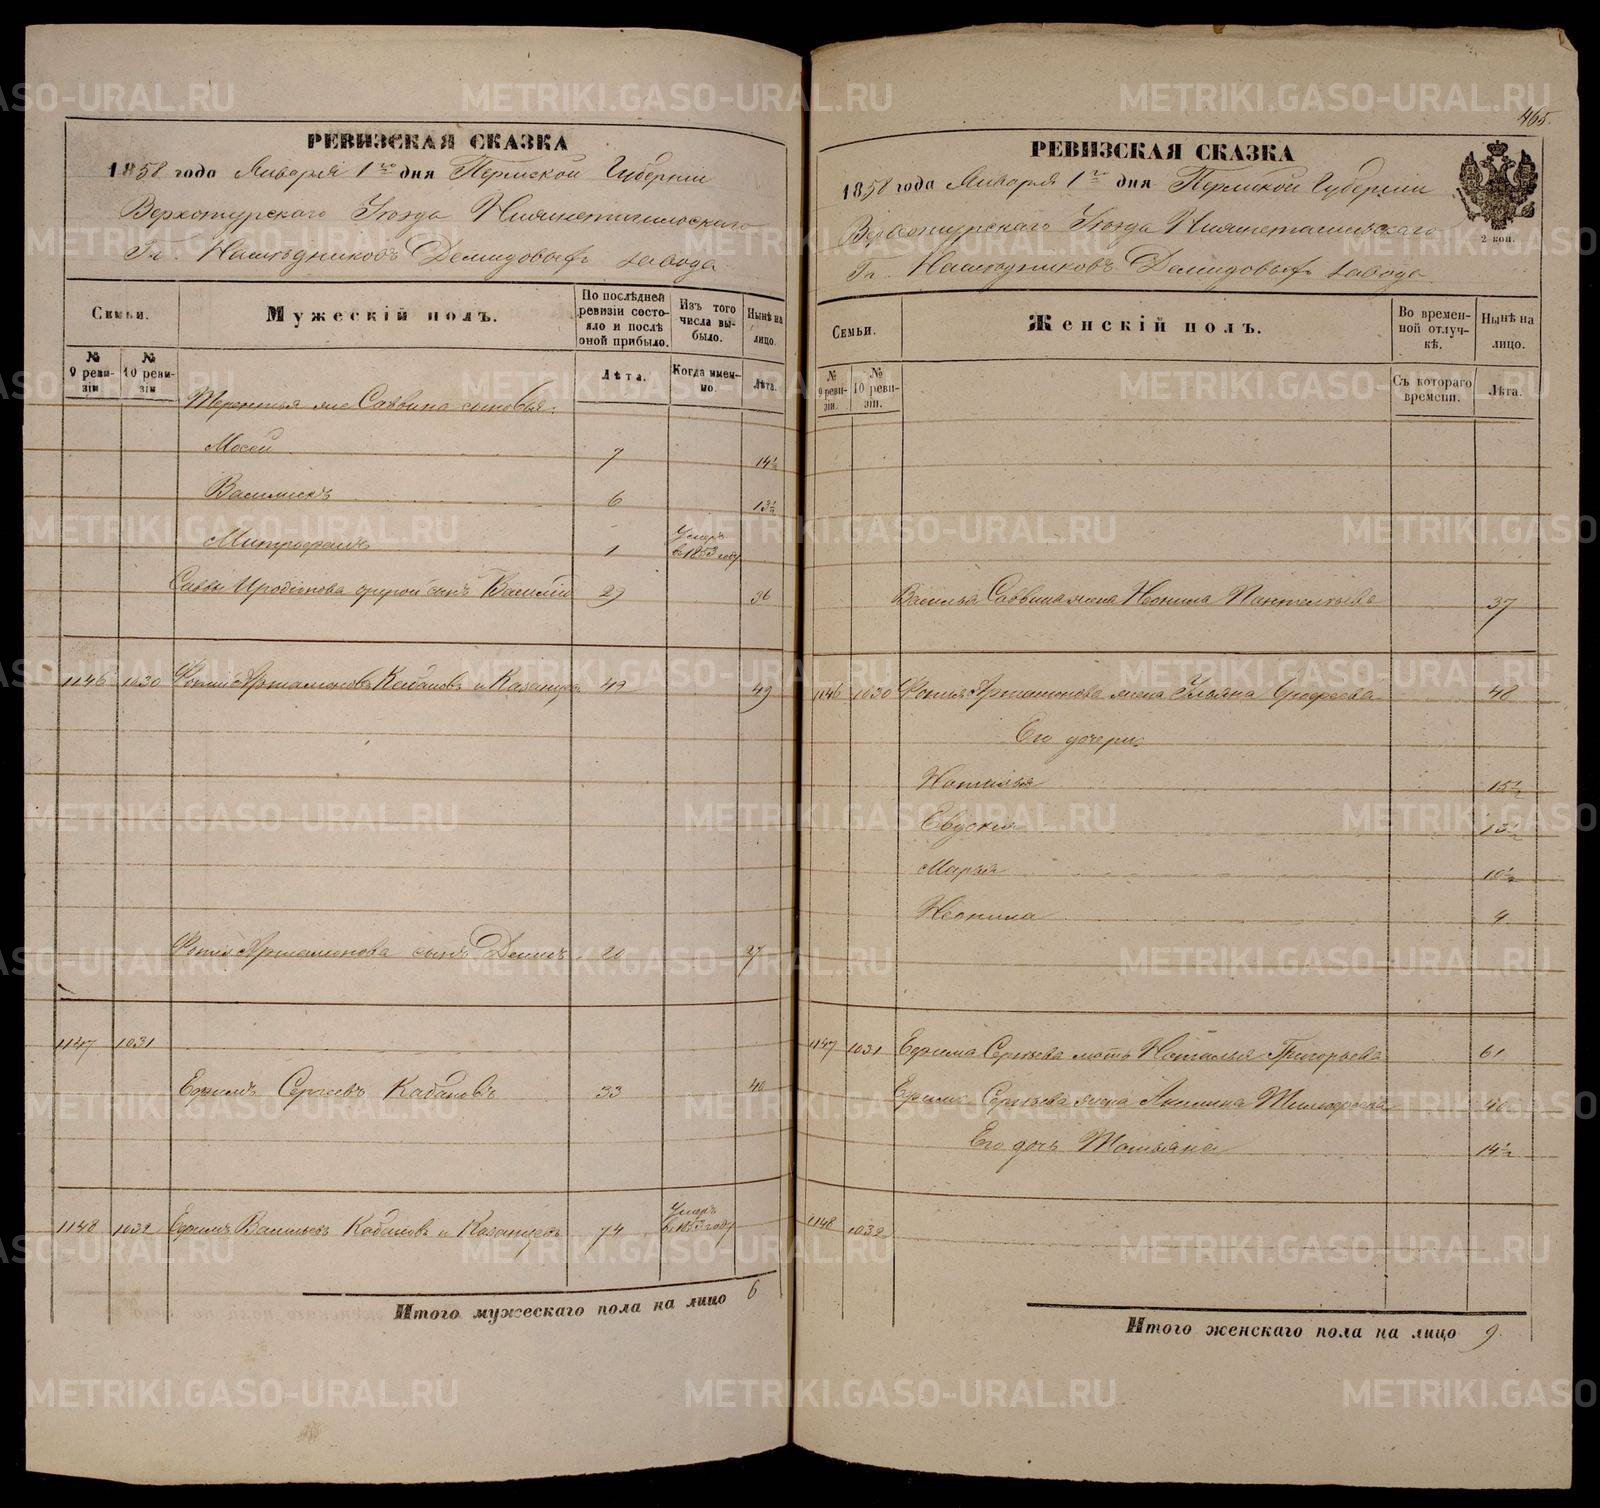 465.
РЕВИЗСКАЯ СКАЗКА
1858 года Января 1го дня Пермской Губернии
Верхотурского Уѣзда Нижнетагильского
Гг. Наслѣдниковъ Демидовыхъ завода
Семьи.
Мужескій полъ.
По послѣдней ревизіи состояло и послѣ оной прибыло.
Изъ того числа выбыло.
Нынѣ на лицо.
№ 9 ревизіи
№ 10 ревизіи
Лѣта.
Когда именно.
Лѣта.
Терентья же Саввина сыновья:
Мосей 7 14½
Василискъ 6 13½
Митрофанъ 1 Умеръ въ 1853 году
Саввы Иродіонова другой сынъ Василій 29 36
1146 1030 Фотій Артамоновъ Кабановъ и Казанцевъ 49
Фотія Артамонова сынъ Денисъ 20 27
1147 1031
Ефимъ Сергѣевъ Кабановъ 33 40
1148 1032 Ефимъ Васильевъ Кабановъ и Казанцевъ 74 Умеръ въ 1853 году
Итого мужескаго пола на лицо 6
РЕВИЗСКАЯ СКАЗКА
1858 года Января 1го дня Пермской Губерніи
Верхотурскаго Уѣзда Нижнетагильскаго
Гг. Наслѣдниковъ Демидовыхъ завода
2 коп.
Семьи.
Женскій полъ.
Во временной отлучкѣ.
Нынѣ на лицо.
№ 9 ревизіи.
№ 10 ревизіи.
Съ котораго времени.
Лѣта.
Василья Саввина жена Неонила Пантелѣева 37
1146 1030 Фотія Артамонова жена Ульяна 48
Его дочери:
Наталья 15½
Евдокія 13½
Марья 10½
Неонила 9
1147 1031 Ефима Сергѣева мать Наталья Григорьева 61
Ефима Сергѣева жена Акилина Тимофеева 40
Его дочь Татьяна 14½
1148 1032
Итого женскаго пола на лицо 9.
METRIKI.GASO-URAL.RU